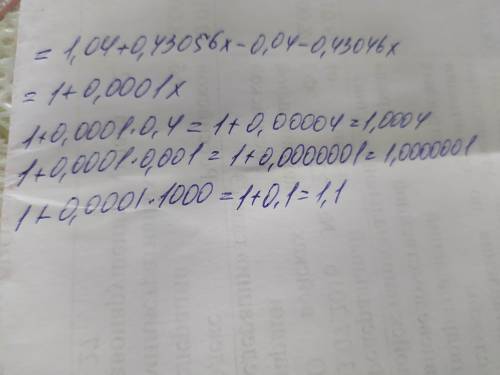 = 1,04+0,43056x-0,04-0,43046x
= 1+0,0001x
1+0,0001·0,4=1+0,00004=1,0004
1+0,0001·0,001=1+0,0000001=1,0000001
1+0,0001·1000=1+0,1=1,1